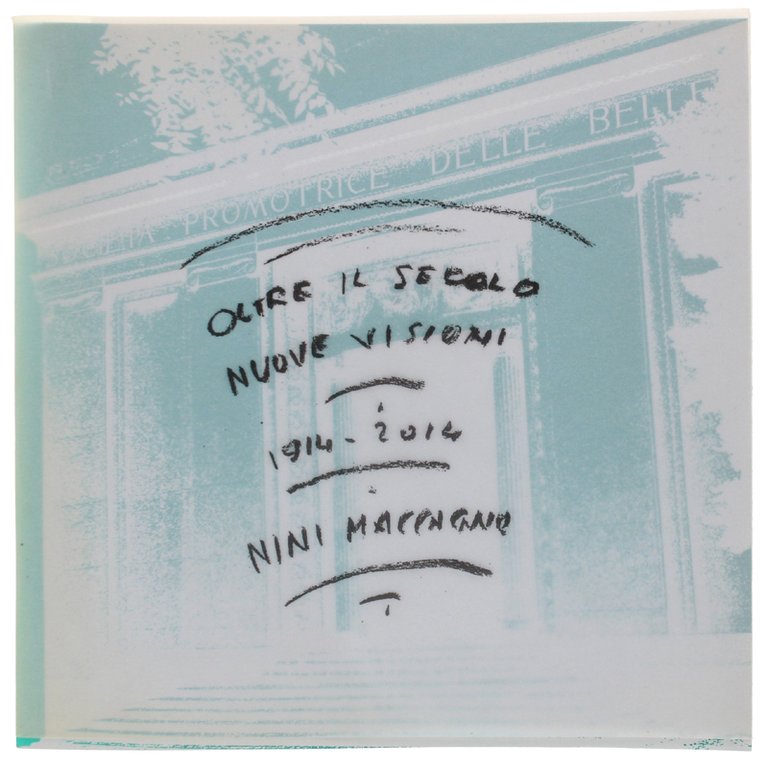 SOCIETÀ · PROMOTRICE DELLE BELLE
OLTRE IL SECOLO
NUOVE VISIONI
1914-2014
NINI MACCAGNO